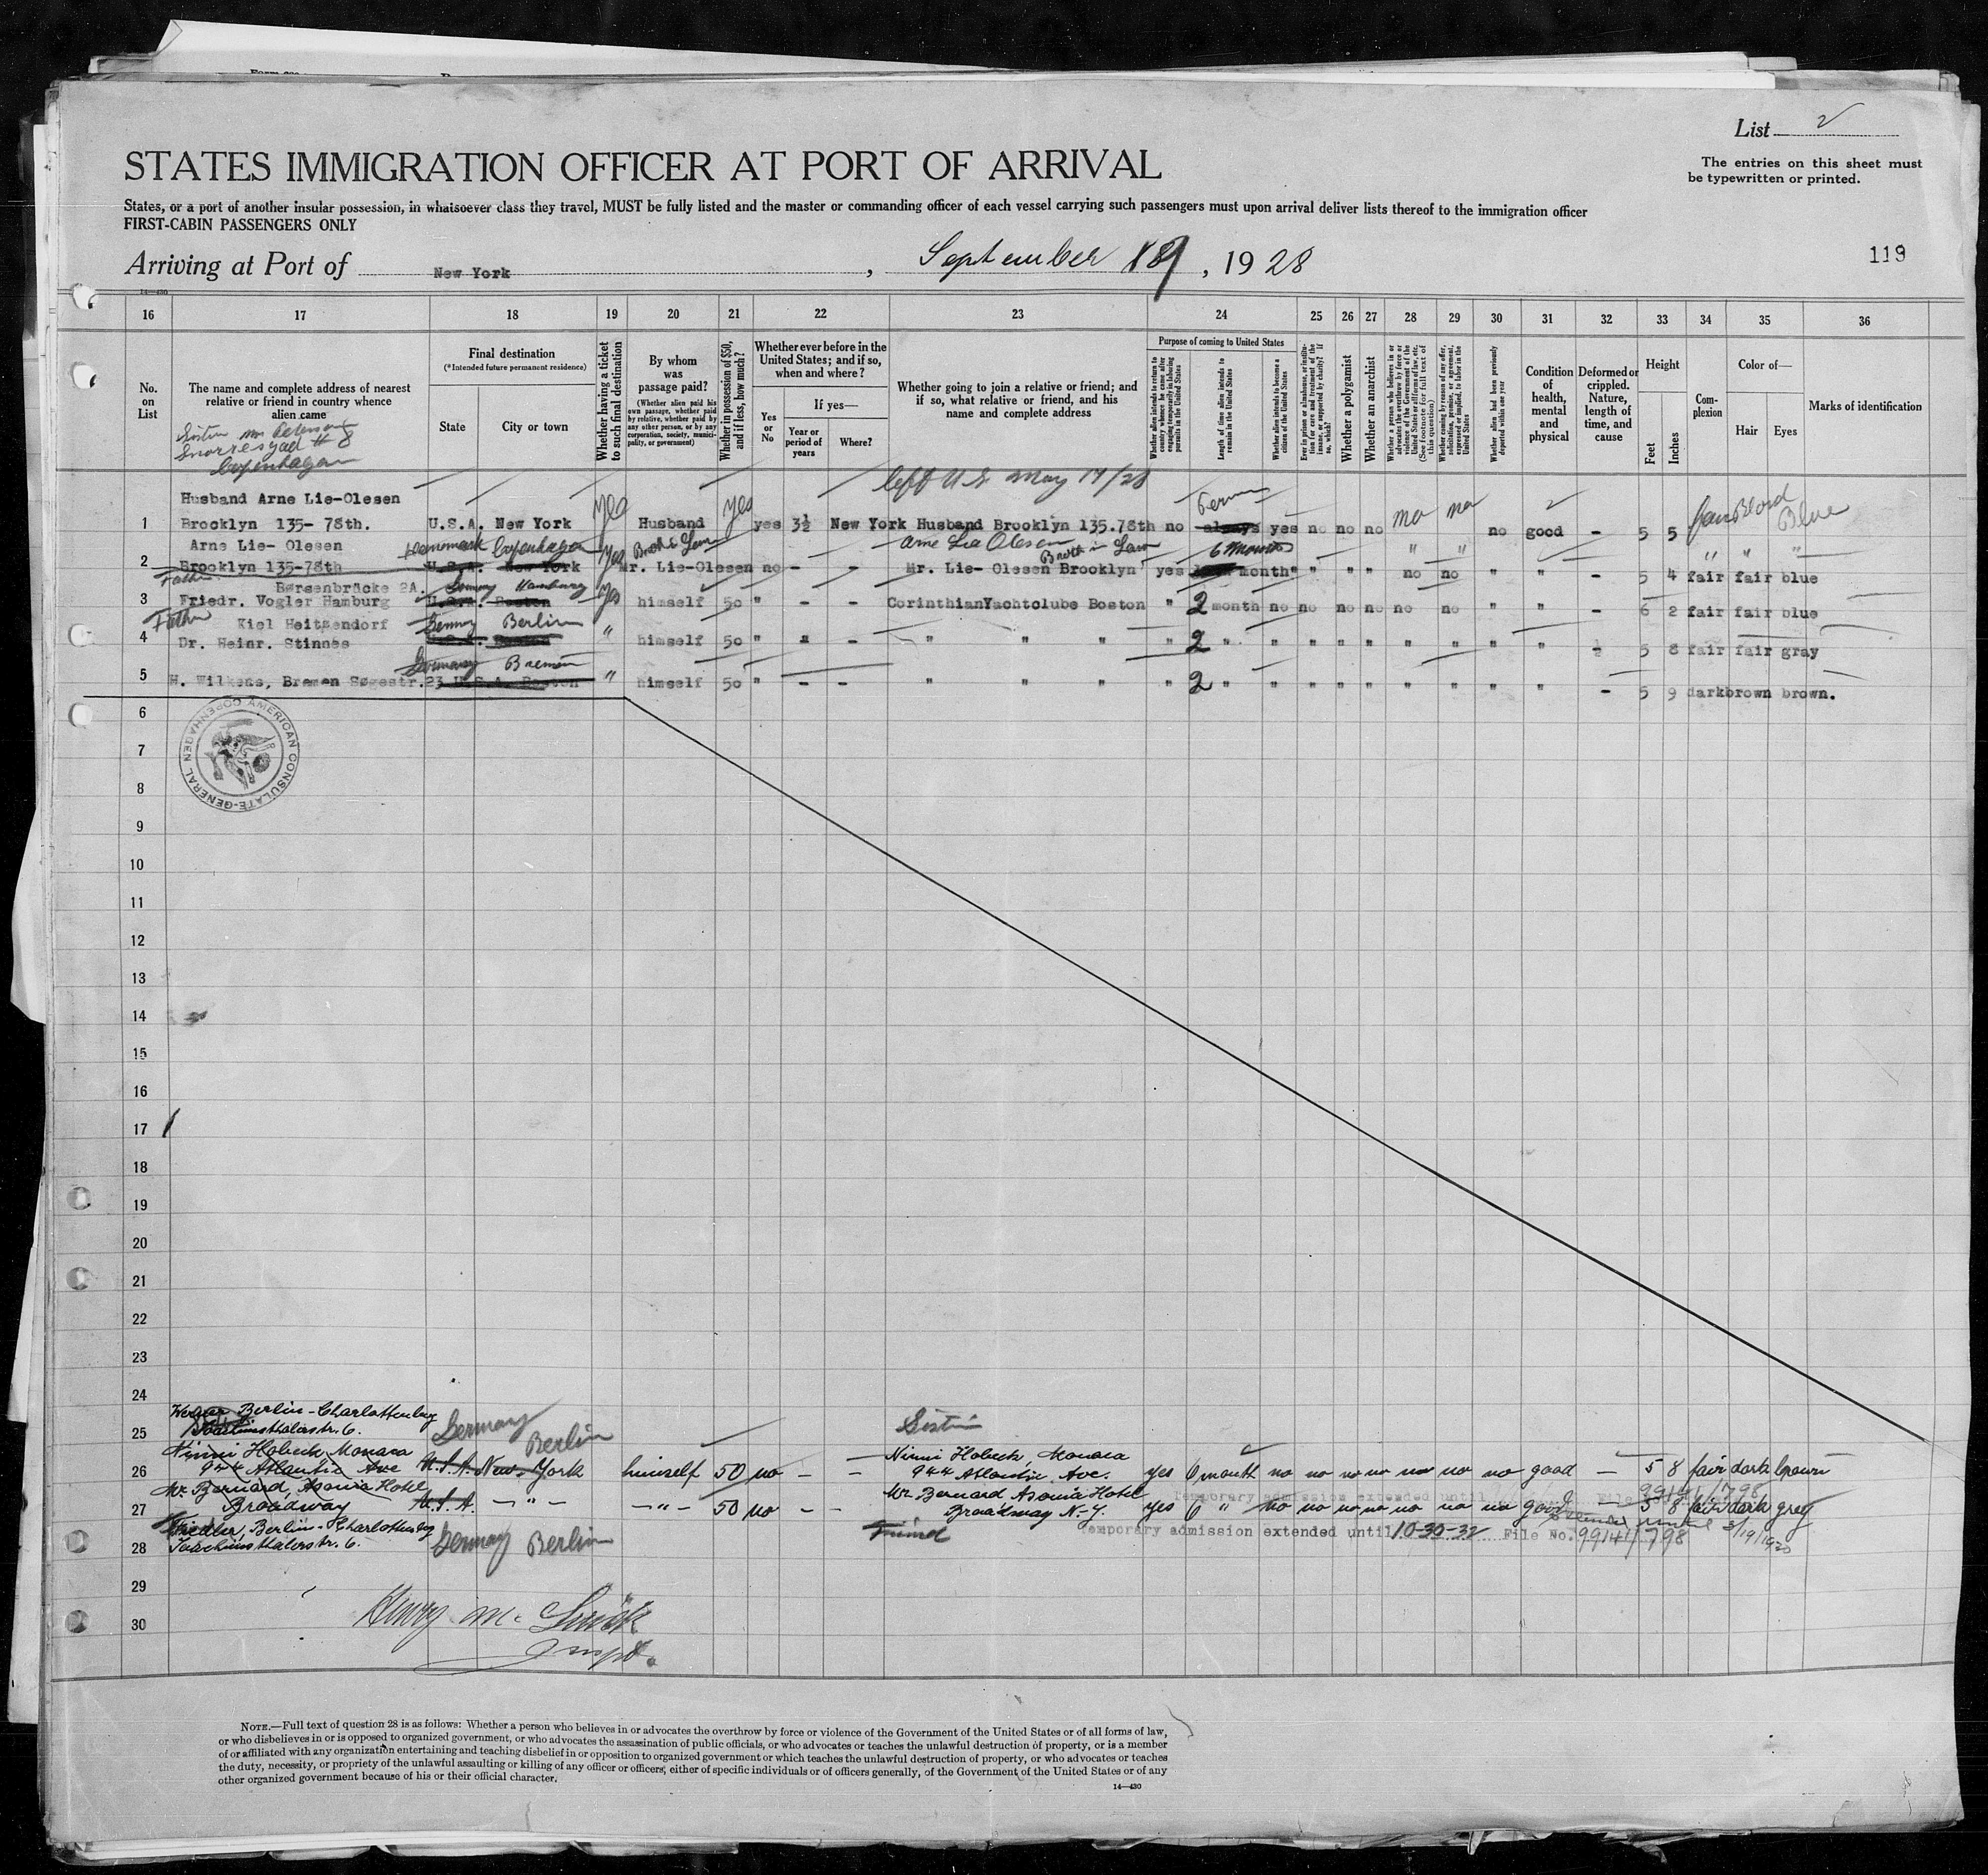 List 2
STATES IMMIGRATION OFFICER AT PORT OF ARRIVAL
The entries on this sheet must
be typewritten or printed.
States, or a port of another insular possession, in whatsoever class they travel, MUST be fully listed and the master or commanding officer of each vessel carrying such passengers must upon arrival deliver lists thereof to the immigration officer
FIRST-CABIN PASSENGERS ONLY
Arriving at Port of New York, September 19, 1928
119
14—430
16 17 18 19 20 21 22 23 24 25 26 27 28 29 30 31 32 33 34 35 36
No. on List
The name and complete address of nearest relative or friend in country whence alien came
Final destination
(*Intended future permanent residence)
State
City or town
Whether having a ticket to such final destination
By whom was passage paid?
(Whether alien paid his own passage, whether paid by relative, whether paid by any other person, or by any corporation, society, municipality, or government)
Whether in possession of $50, and if less, how much?
Whether ever before in the United States; and if so, when and where?
Yes or No
If yes—
Year or period of years
Where?
Whether going to join a relative or friend; and if so, what relative or friend, and his name and complete address
Purpose of coming to United States
Whether alien intends to return to country whence he came after engaging temporarily in laboring pursuits in the United States
Length of time alien intends to remain in the United States
Whether alien intends to become a citizen of the United States
Ever in prison or almshouse, or institution for care and treatment of the insane, or supported by charity? If so, which?
Whether a polygamist
Whether an anarchist
Whether a person who believes in or advocates the overthrow by force or violence of the Government of the United States or all forms of law, etc. (See footnote for full text of this question)
Whether coming by reason of any offer, solicitation, promise, or agreement, expressed or implied, to labor in the United States
Whether alien had been previously deported within one year
Condition of health, mental and physical
Deformed or crippled. Nature, length of time, and cause
Height
Feet
Inches
Complexion
Color of—
Hair
Eyes
Marks of identification
Sister Mrs Petersen
Snorresgad # 8
Copenhagen
left U.S. May 17/28
Husband Arne Lie-Olesen
1 Brooklyn 135- 78th. U.S.A. New York yes Husband yes yes 3½ New York Husband Brooklyn 135.78th no always Perm yes no no no no no no good - 5 5 fair Blond Blue
Arne Lie- Olesen Denmark Copenhagen Broth Law Arne Lie Olesen Broth in Law 6 months " " " " "
2 Brooklyn 135-78th U.S.A. New York yes Mr. Lie-Olesen no - - Mr. Lie- Olesen Brooklyn yes month " " " " no no " " - 5 4 fair fair blue
Father Børsenbrücke 2A. Germany Hamburg
3 Friedr. Vogler Hamburg U.S.A. Boston yes himself 50 " - - CorinthianYachtclube Boston " 2 month no no no no no no " " - 6 2 fair fair blue
Father Kiel Heitzendorf Germany Berlin
4 Dr. Heinr. Stinnes U.S.A. Boston " himself 50 " " - " " " " 2 " " " " " " " " " ½ 5 8 fair fair gray
Germany Bremen
5 H. Wilkens, Bremen Søgestr.23 U.S.A. Boston " himself 50 " - - " " " " 2 " " " " " " " " " - 5 9 darkbrown brown.
6
AMERICAN CONSULATE-GENERAL COPENHAGEN
7
8
9
10
11
12
13
14
15
16
17
18
19
20
21
22
23
24
Berlin-Charlottenburg
25 Joachimsthalerstr. 6. Germany Berlin
Ninni Hobeck, Monaca Ninni Hobeck, Monaca
26 944 Atlantic Ave U.S.A. New-York himself 50 no - - 944 Atlantic Ave. yes 6 month no no no no no no no good - 5 8 fair dark brown
Mr Bernard, Asonia Hotel Mr Bernard Asonia Hotel Temporary admission extended until 99141/798
27 Broadway U.S.A. - " - - " - 50 no - - Broadway N-Y. yes 6 " no no no no no no no good - 5 8 fair dark grey
Fiedler, Berlin-Charlottenbg Friend Temporary admission extended until 10-30-32 File No. 99141/798
28 Joachimsthalerstr. 6. Germany Berlin
29
30 Henry M.
Inspt.
NOTE.—Full text of question 28 is as follows: Whether a person who believes in or advocates the overthrow by force or violence of the Government of the United States or of all forms of law,
or who disbelieves in or is opposed to organized government, or who advocates the assassination of public officials, or who advocates or teaches the unlawful destruction of property, or is a member
of or affiliated with any organization entertaining and teaching disbelief in or opposition to organized government or which teaches the unlawful destruction of property, or who advocates or teaches
the duty, necessity, or propriety of the unlawful assaulting or killing of any officer or officers, either of specific individuals or of officers generally, of the Government of the United States or of any
other organized government because of his or their official character.
14—430